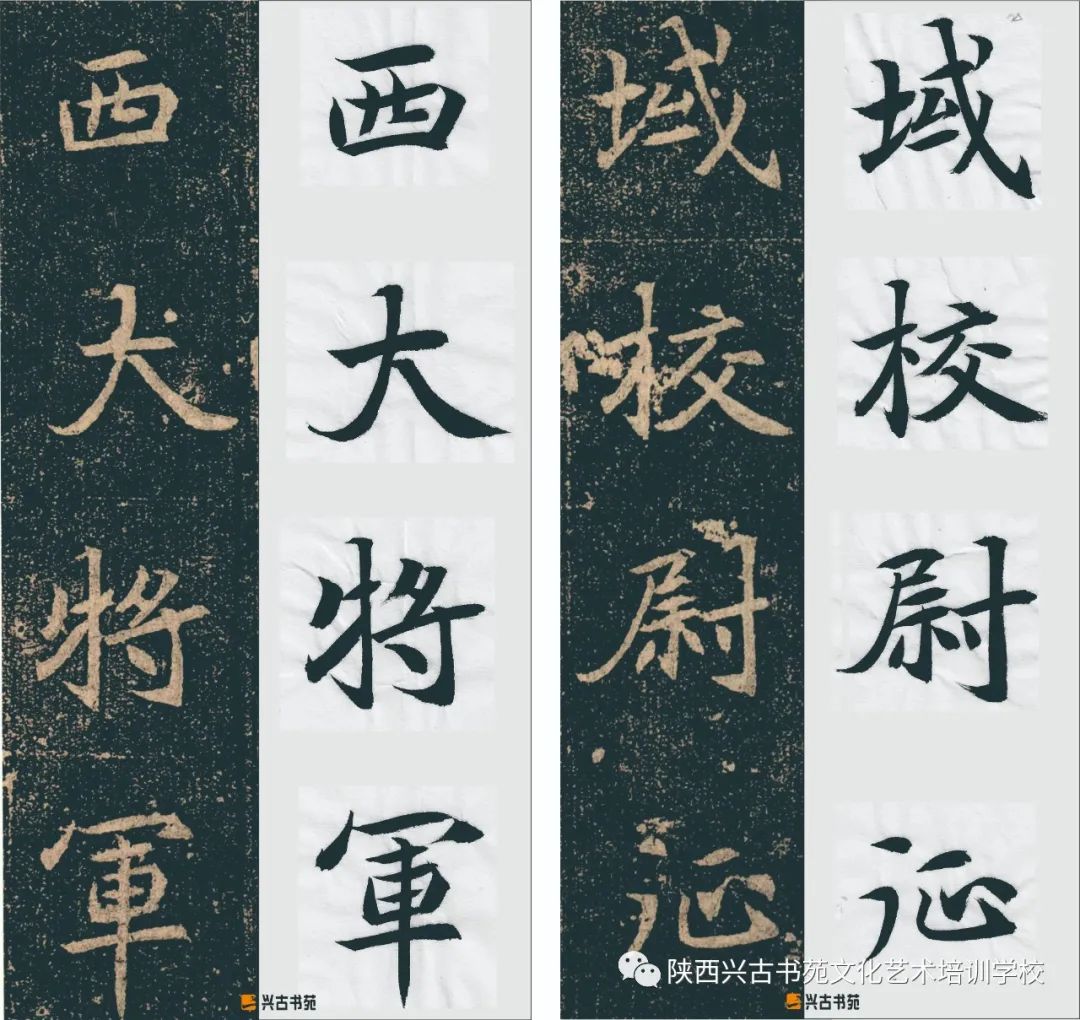 西 西
大 大
將 將
軍 軍
兴古书苑
域 域
校 校
尉 尉
征 征
陕西兴古书苑文化艺术培训学校
兴古书苑